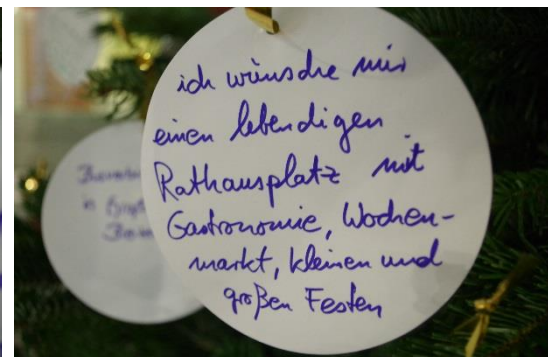 ich wünsche mir
einen lebendigen
Rathausplatz mit
Gastronomie, Wochen-
markt, kleinen und
großen Festen